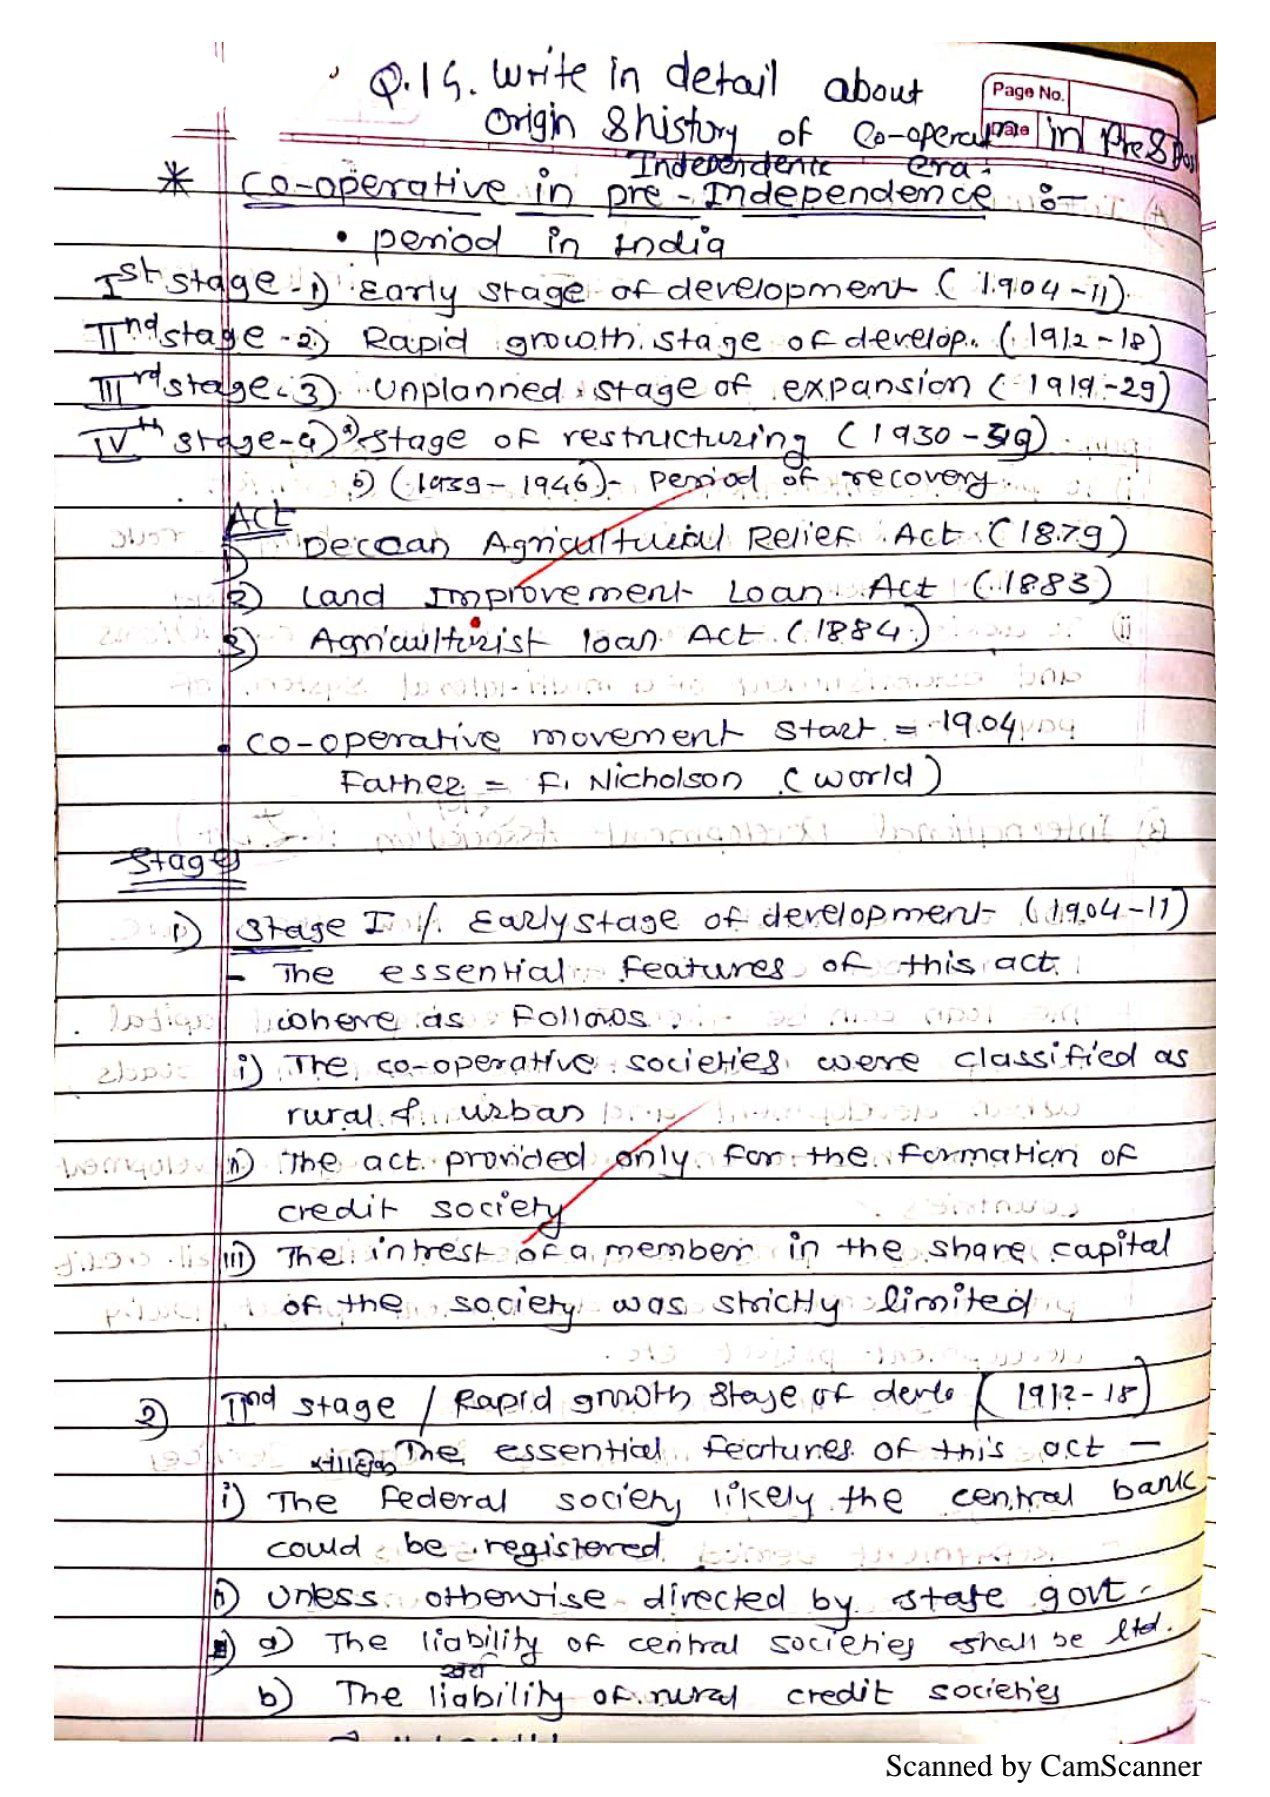 Q.14. Write in detail about
Page No.
Date
Origin & history of Co-operat in Pre &
Independence era:
* Co-operative in pre-Independence :-
• period in India
Ist stage - 1) Early stage of development (1904-11).
IInd stage - 2) Rapid growth stage of develop. (1912-18)
IIIrd stage - 3) Unplanned stage of expansion (1919-29)
IVth stage - 4) a) stage of restructuring (1930-39)
b) (1939-1946)- period of recovery
Act
1) Deccan Agricultural Relief Act (1879)
2) Land Improvement Loan Act (1883)
3) Agriculturist loan Act (1884)
• Co-operative movement start = 1904
Father = F. Nicholson (world)
Stages
1) Stage I / Early stage of development (1904-11)
- The essential features of this act
where as follows.
i) The co-operative societies were classified as
rural & urban
ii) The act provided only for the formation of
credit society
iii) The intrest of a member in the share capital
of the society was strictly limited
2) IInd stage / Rapid growth stage of (1912-18)
The essential features of this act -
i) The federal society likely the central bank
could be registered
ii) unless otherwise directed by state govt.
a) The liability of central societies shall be ltd.
b) The liability of rural credit societies
Scanned by CamScanner